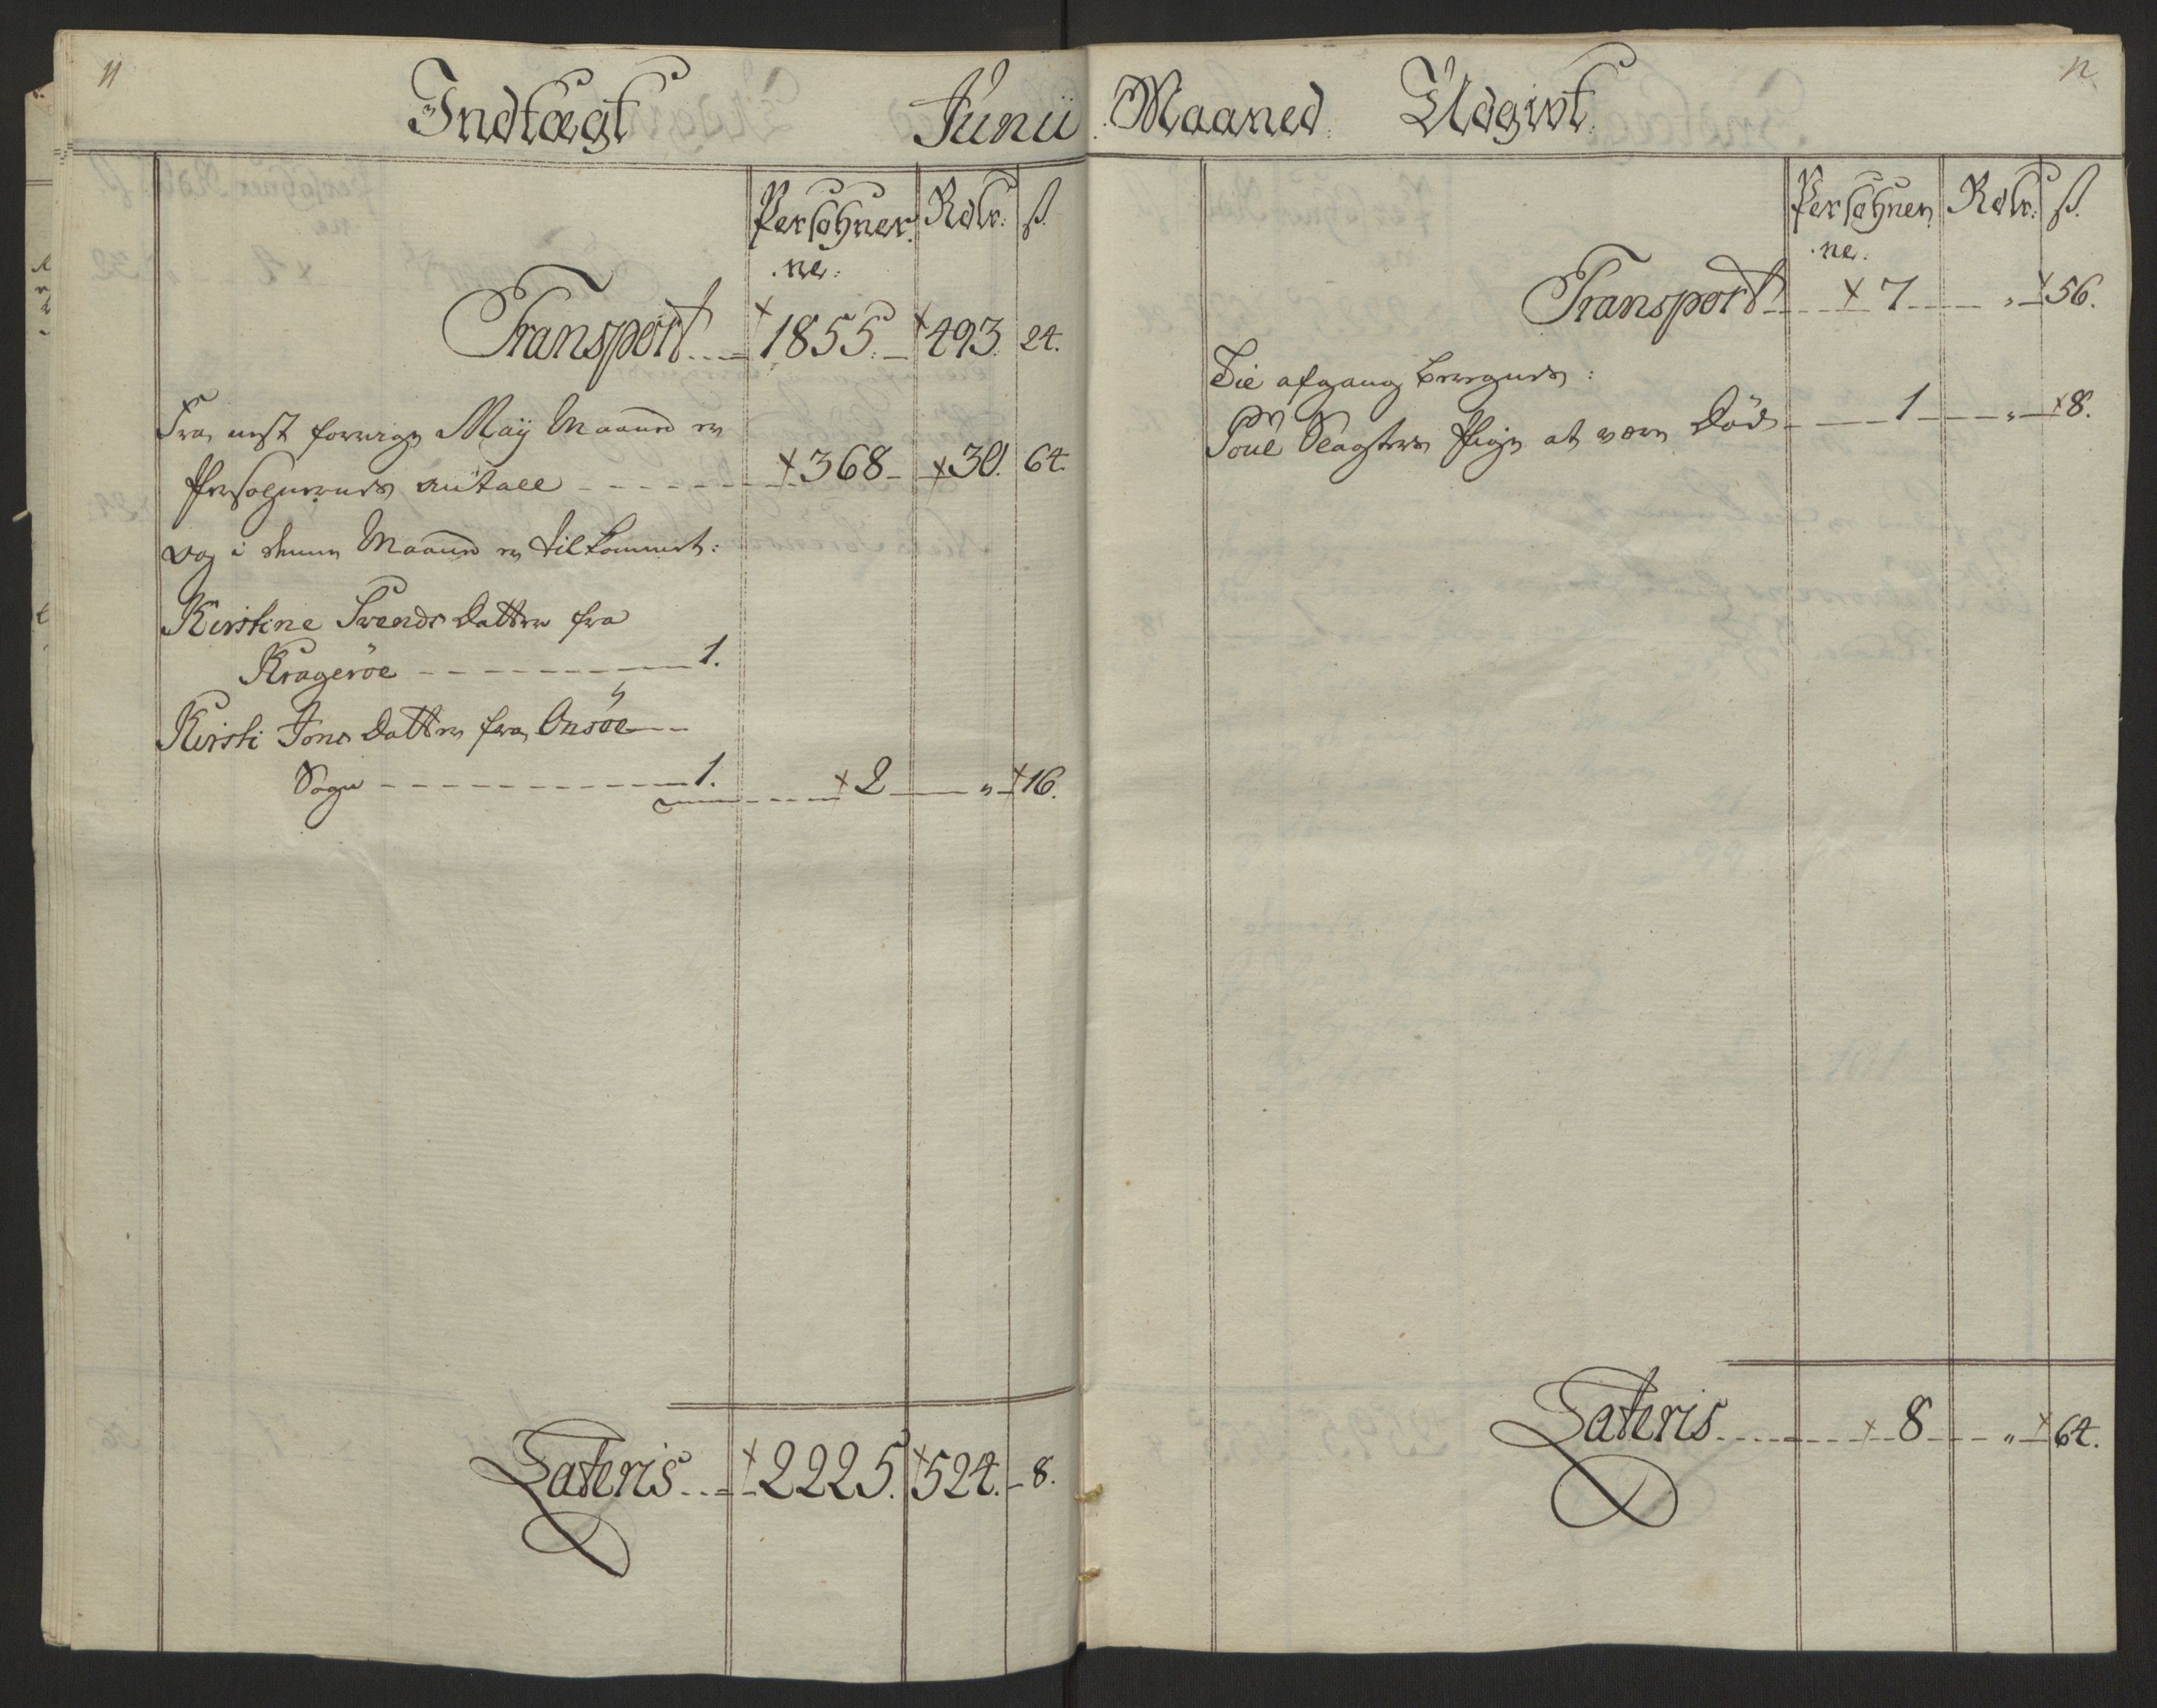 11
Indtægt Junii
Persohner Rdlr: ß.
ne:
Transport 1855. 493. 24.
Fra nest forrige Maij Maaned er
Persohnernes antall 368 30. 64.
og i denne Maaned er tilkommet:
Kirstine Svends Datter fra
Kragerøe 1.
Kirsti Jons Datter fra Onsøe
Sogn 1. 2 " 16.
Lateris 2225. 524. 8.
12
Maaned Udgivt
Persohner Rdlr: ß.
ne:
Transport 7 " 56.
Til afgang beregnes:
Poul Slagters Pige at være Død 1 " 8.
Lateris 8 " 64.